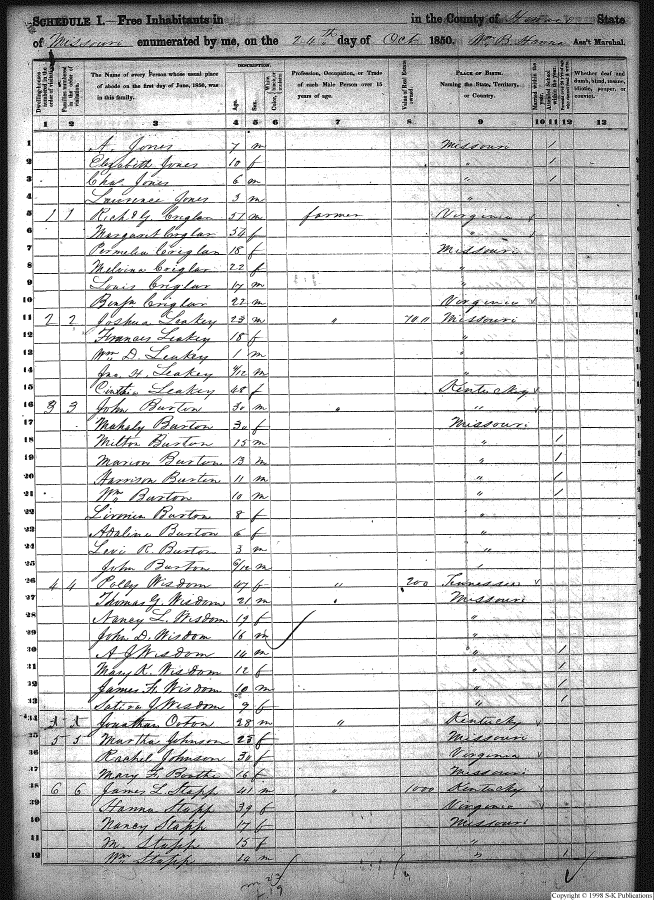 SCHEDULE I.—Free Inhabitants in in the County of State
of Missouri enumerated by me, on the 24th day of Oct 1850. Wm B Ass't Marshal.
Dwelling-houses numbered in the order of visitation.
Families numbered in the order of visitation.
The Name of every Person whose usual place of abode on the first day of June, 1850, was in this family.
DESCRIPTION.
Age.
Sex.
Color, White, black, or mulatto.
Profession, Occupation, or Trade of each Male Person over 15 years of age.
Value of Real Estate owned.
PLACE OF BIRTH.
Naming the State, Territory, or Country.
Married within the year.
Attended School within the year.
Whether deaf and dumb, blind, insane, idiotic, pauper, or convict.
1 2 3 4 5 6 7 8 9 10 11 12 13
1 A. Jones 7 m Missouri 1
2 Elizabeth Jones 10 f " 1
3 Chas Jones 6 m " 1
4 Lawrence Jones 3 m "
5 1 1 Richd G Criglar 51 m farmer Virginia
6 Margaret Criglar 54 f "
7 Permelia Criglar 18 f Missouri
8 Melvina Criglar 22 f "
9 Louis Criglar 17 m "
10 Benjm Criglar 22 m Virginia
11 2 2 Joshua Leakey 23 m " 700 Missouri
12 Frances Leakey 18 f "
13 Wm D. Leakey 1 m "
14 Jna H. Leakey 9/12 m "
15 Cinthia Leakey 48 f Kentucky
16 3 3 John Burton 30 m " "
17 Mahaly Burton 30 f Missouri
18 Milton Burton 15 m " 1
19 Marion Burton 13 m " 1
20 Harrison Burton 11 m " 1
21 Wm Burton 10 m " 1
22 Burton 8 f "
23 Adaline Burton 6 f "
24 Levi R. Burton 3 m "
25 John Burton m "
26 4 4 Polly Wisdom 47 f " 200 Tennessee
27 Thomas G. Wisdom 21 m " Missouri
28 Nancy L. Wisdom 19 f "
29 John D. Wisdom 16 m "
30 A J Wisdom 14 m " 1
31 Mary K. Wisdom 12 f " 1
32 James H. Wisdom 10 m " 1
33 J Wisdom 9 f " 1
34 Jonathan Orton 28 m " Kentucky
35 5 5 Martha Johnson 28 f Missouri
36 Rachel Johnson 30 f Virginia
37 Mary F. Boothe 16 f Missouri
38 6 6 James L. Stapp 41 m " 1000 Kentucky
39 Hanna Stapp 39 f Virginia
40 Nancy Stapp 17 f Missouri
41 M. Stapp 15 f "
42 Wm Stapp 14 m " 1
m 23
f 19
Copyright © 1998 S-K Publications